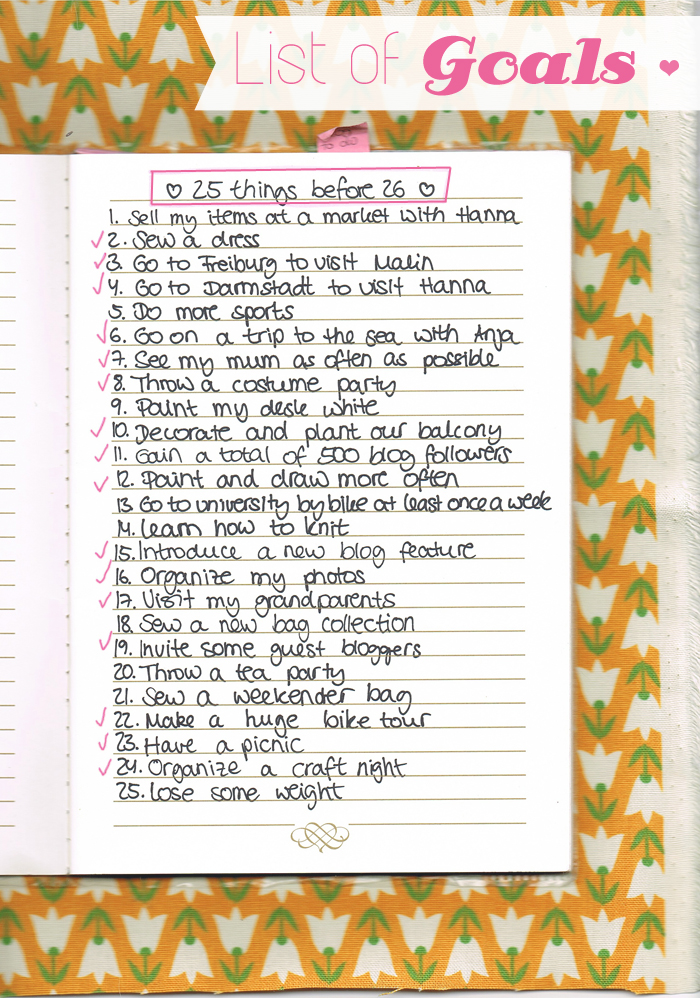 List of Goals ♥
to do
♡ 25 things before 26 ♡
1. Sell my items at a market with Hanna
✓ 2. Sew a dress
✓ 3. Go to Freiburg to visit Malin
✓ 4. Go to Darmstadt to visit Hanna
5. Do more sports
✓ 6. Go on a trip to the sea with Anja
✓ 7. See my mum as often as possible
✓ 8. Throw a costume party
9. Paint my desk white
✓ 10. Decorate and plant our balcony
✓ 11. Gain a total of 500 blog followers
✓ 12. Paint and draw more often
13. Go to university by bike at least once a week
14. Learn how to knit
✓ 15. Introduce a new blog feature
✓ 16. Organize my photos
✓ 17. Visit my grandparents
18. Sew a new bag collection
✓ 19. Invite some guest bloggers
20. Throw a tea party
21. Sew a weekender bag
✓ 22. Make a huge bike tour
✓ 23. Have a picnic
✓ 24. Organize a craft night
25. Lose some weight